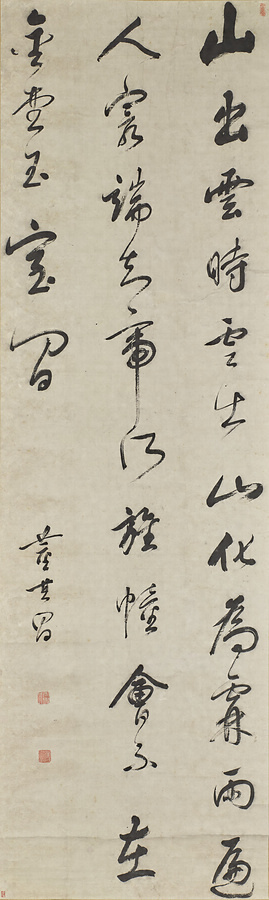 山出雲時雲出山化為霖雨遍
人寰端知帝所旌幢會不在
金堂玉室間
董其昌